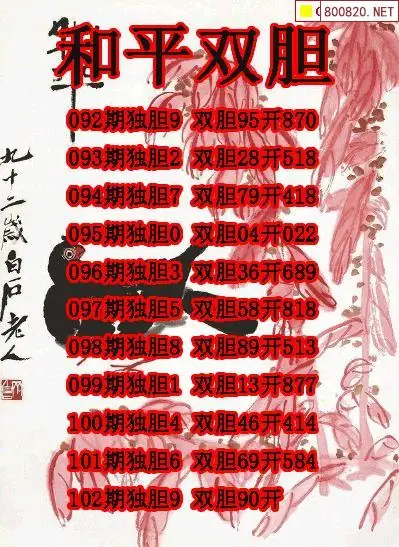 800820.NET
和平双胆
092期独胆9 双胆95开870
093期独胆2 双胆28开518
094期独胆7 双胆79开418
095期独胆0 双胆04开022
096期独胆3 双胆36开689
097期独胆5 双胆58开818
098期独胆8 双胆89开513
099期独胆1 双胆13开877
100期独胆4 双胆46开414
101期独胆6 双胆69开584
102期独胆9 双胆90开
九十二岁白石老人